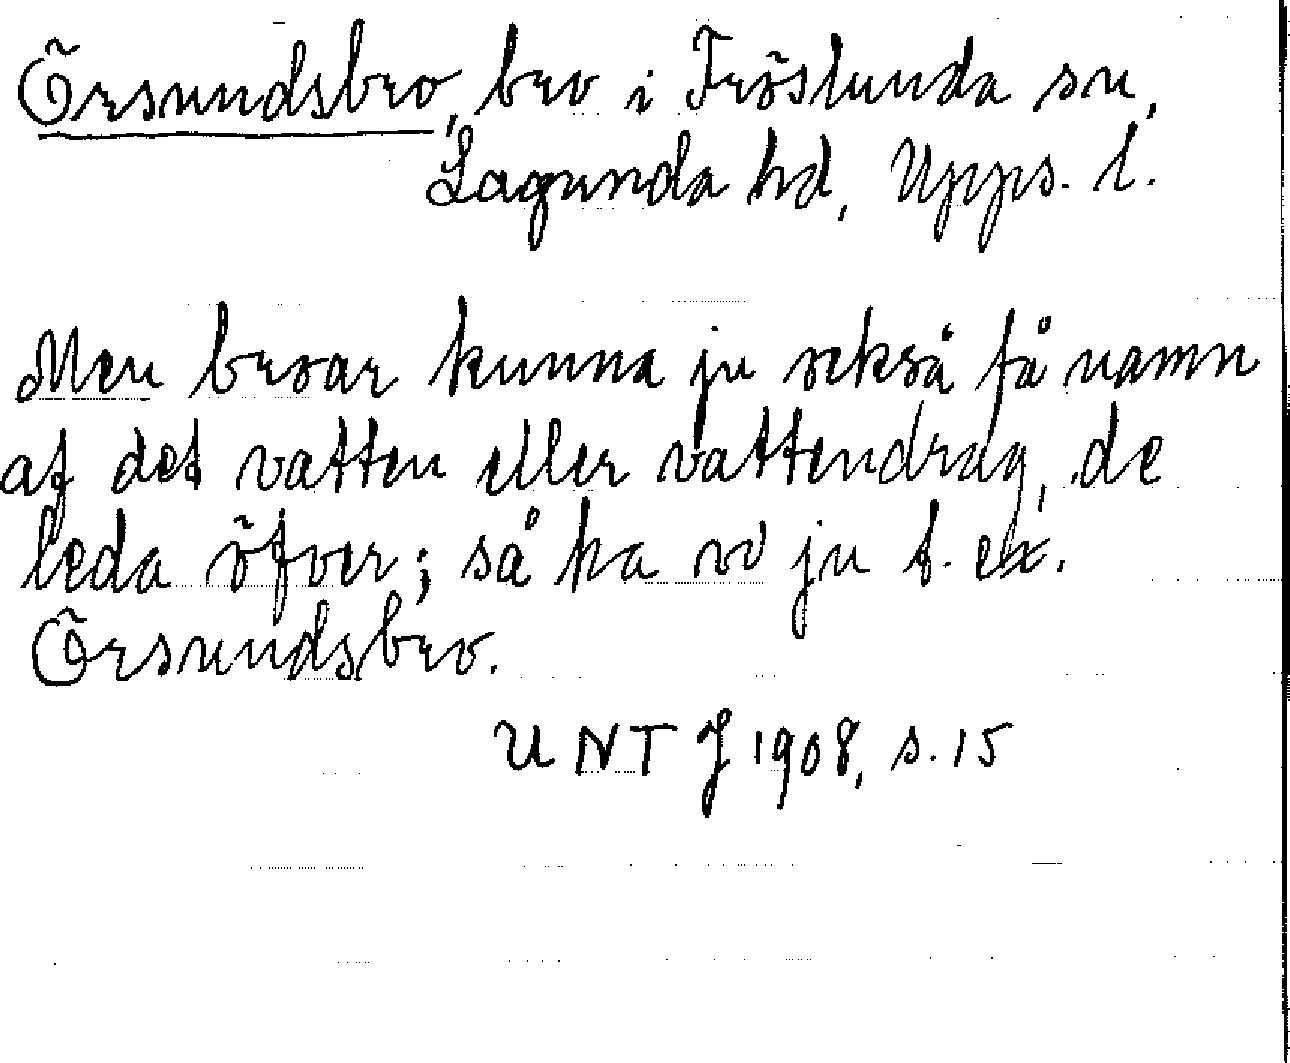 Örsundsbro, bro i Fröslunda sn,
Lagunda hd, Upps. l.
Men broar kunna ju också få namn
af det vatten eller vattendrag, de
leda öfver; så ha vi ju t. ex.
Örsundsbro.
UNT J 1908, s. 15